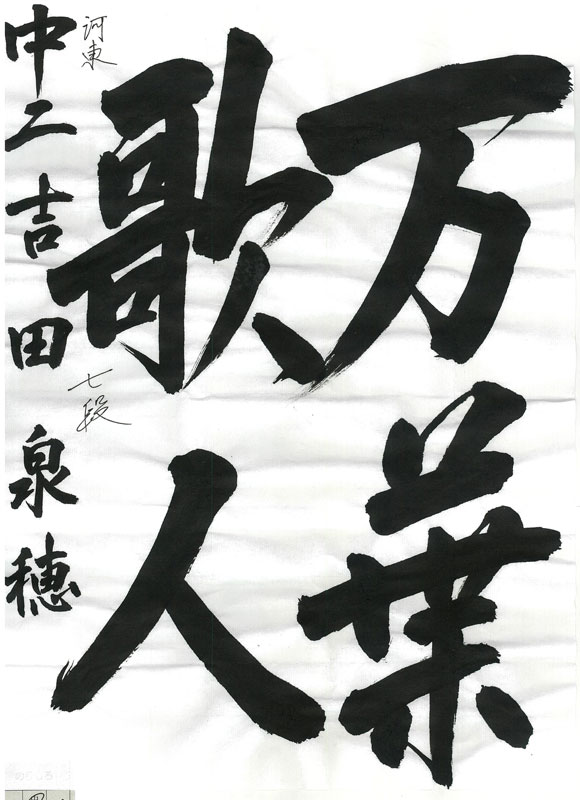 万葉
歌人
河東
中二吉田泉穂
七段